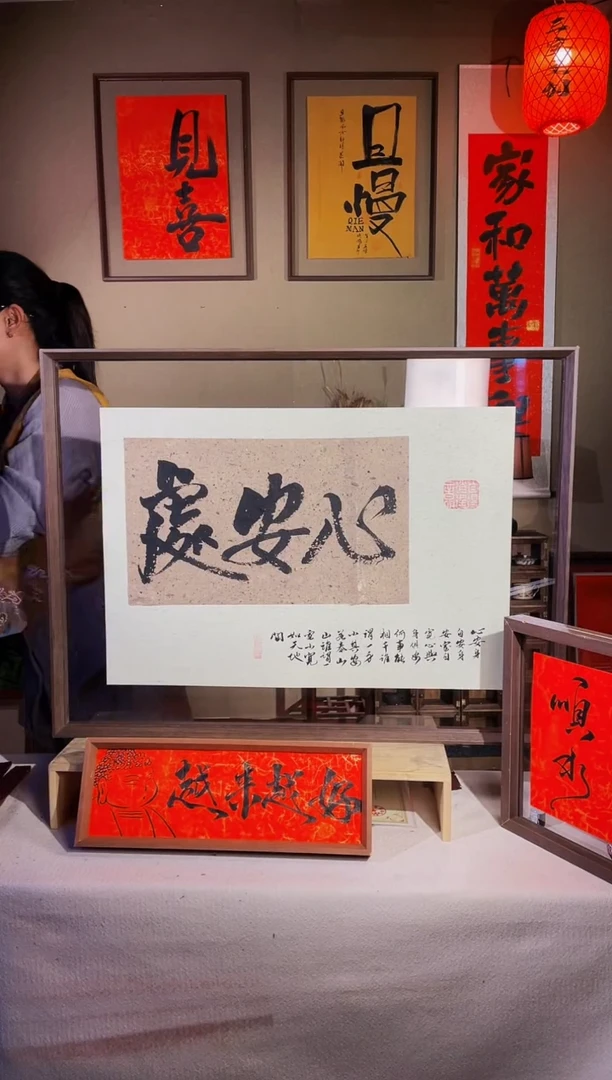 見喜
且慢
QIE
MAN
家和萬事
心安處
心安身
自安身
安室自
寬心與
身俱安
何事能
相干誰
謂一身
小其安
若泰山
誰謂一
室小寬
如天地
間
越来越好
順